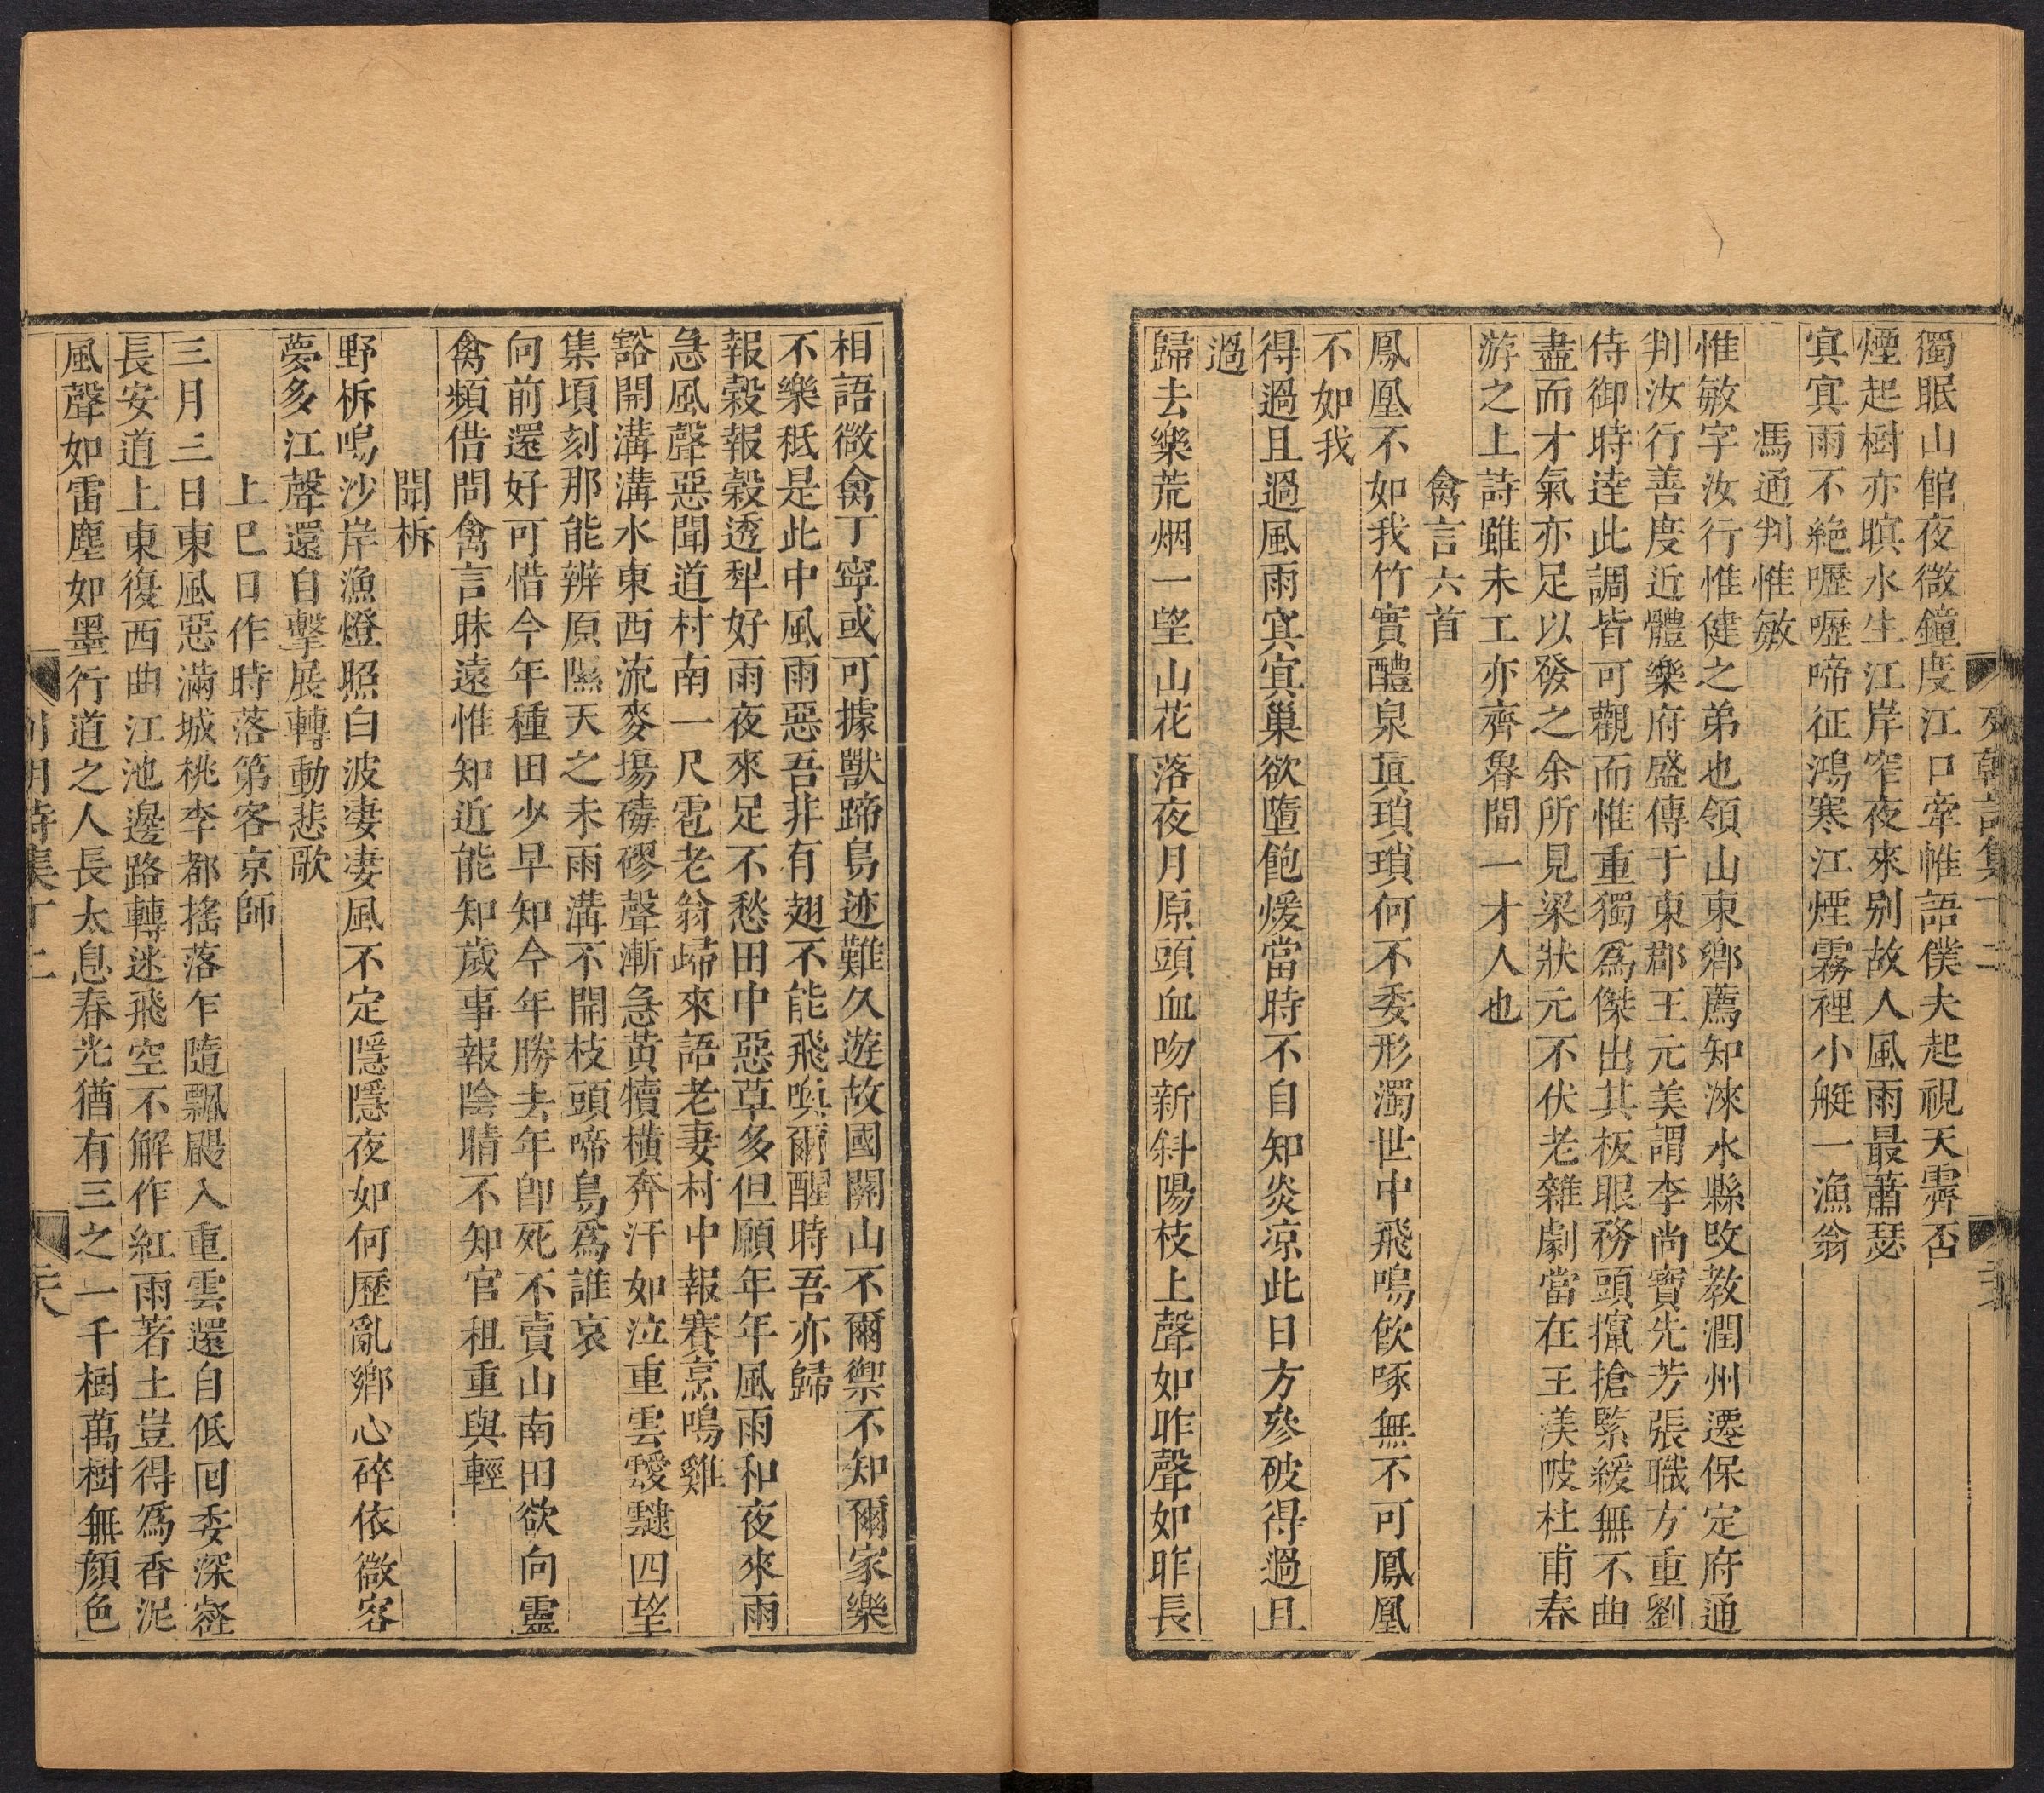 獨眠山館夜微鐘度江口牽帷語僕夫起視天霽否
煙起樹亦暝水生江岸窄夜來別故人風雨最蕭瑟
寘寘雨不絶嚦嚦啼征鴻寒江煙霧裡小艇一漁翁
馮通判惟敏
惟敏字汝行惟健之弟也領山東鄉薦知淶水縣改教潤州遷保定府通
判汝行善度近體樂府盛傳于東郡王元美謂李尚寶先芳張職方重劉
侍御時逹此調皆可觀而惟重獨爲傑出其板眼務頭攛搶緊緩無不曲
盡而才氣亦足以發之余所見梁狀元不伏老雜劇當在王渼陂杜甫春
游之上詩雖未工亦齊魯間一才人也
禽言六首
鳳凰不如我竹實醴泉真瑣瑣何不委形濁世中飛鳴飮啄無不可鳳凰
不如我
得過且過風雨寘寘巢欲墮飽煖當時不自知炎凉此日方參破得過且
過
歸去樂荒烟一望山花落夜月原頭血吻新斜陽枝上聲如昨聲如昨長
相語微禽丁寧或可據獸蹄鳥迹難久遊故國關山不爾禦不知爾家樂
不樂秪是此中風雨惡吾非有翅不能飛喚爾醒時吾亦歸
報穀報穀透犁好雨夜來足不愁田中惡草多但願年年風雨和夜來雨
急風聲惡聞道村南一尺雹老翁歸來語老妻村中報賽烹鳴雞
豁開溝溝水東西流麥場磚磟聲漸急黃犢橫奔汗如泣重雲靉靆四望
集頃刻那能辨原隰天之未雨溝不開枝頭啼鳥爲誰哀
向前還好可惜今年種田少早知今年勝去年卽死不賣山南田欲向靈
禽頻借問禽言昧遠惟知近能知歲事報陰晴不知官租重與輕
聞柝
野柝鳴沙岸漁燈照白波淒淒風不定隱隱夜如何歷亂鄉心碎依微客
夢多江聲還自擊展轉動悲歌
上巳日作時落第客京師
三月三日東風惡滿城桃李都搖落乍隨飄颺入重雲還自低回委深壑
長安道上東復西曲江池邊路轉迷飛空不解作紅雨著土豈得爲香泥
風聲如雷塵如墨行道之人長太息春光猶有三之一千樹萬樹無顏色